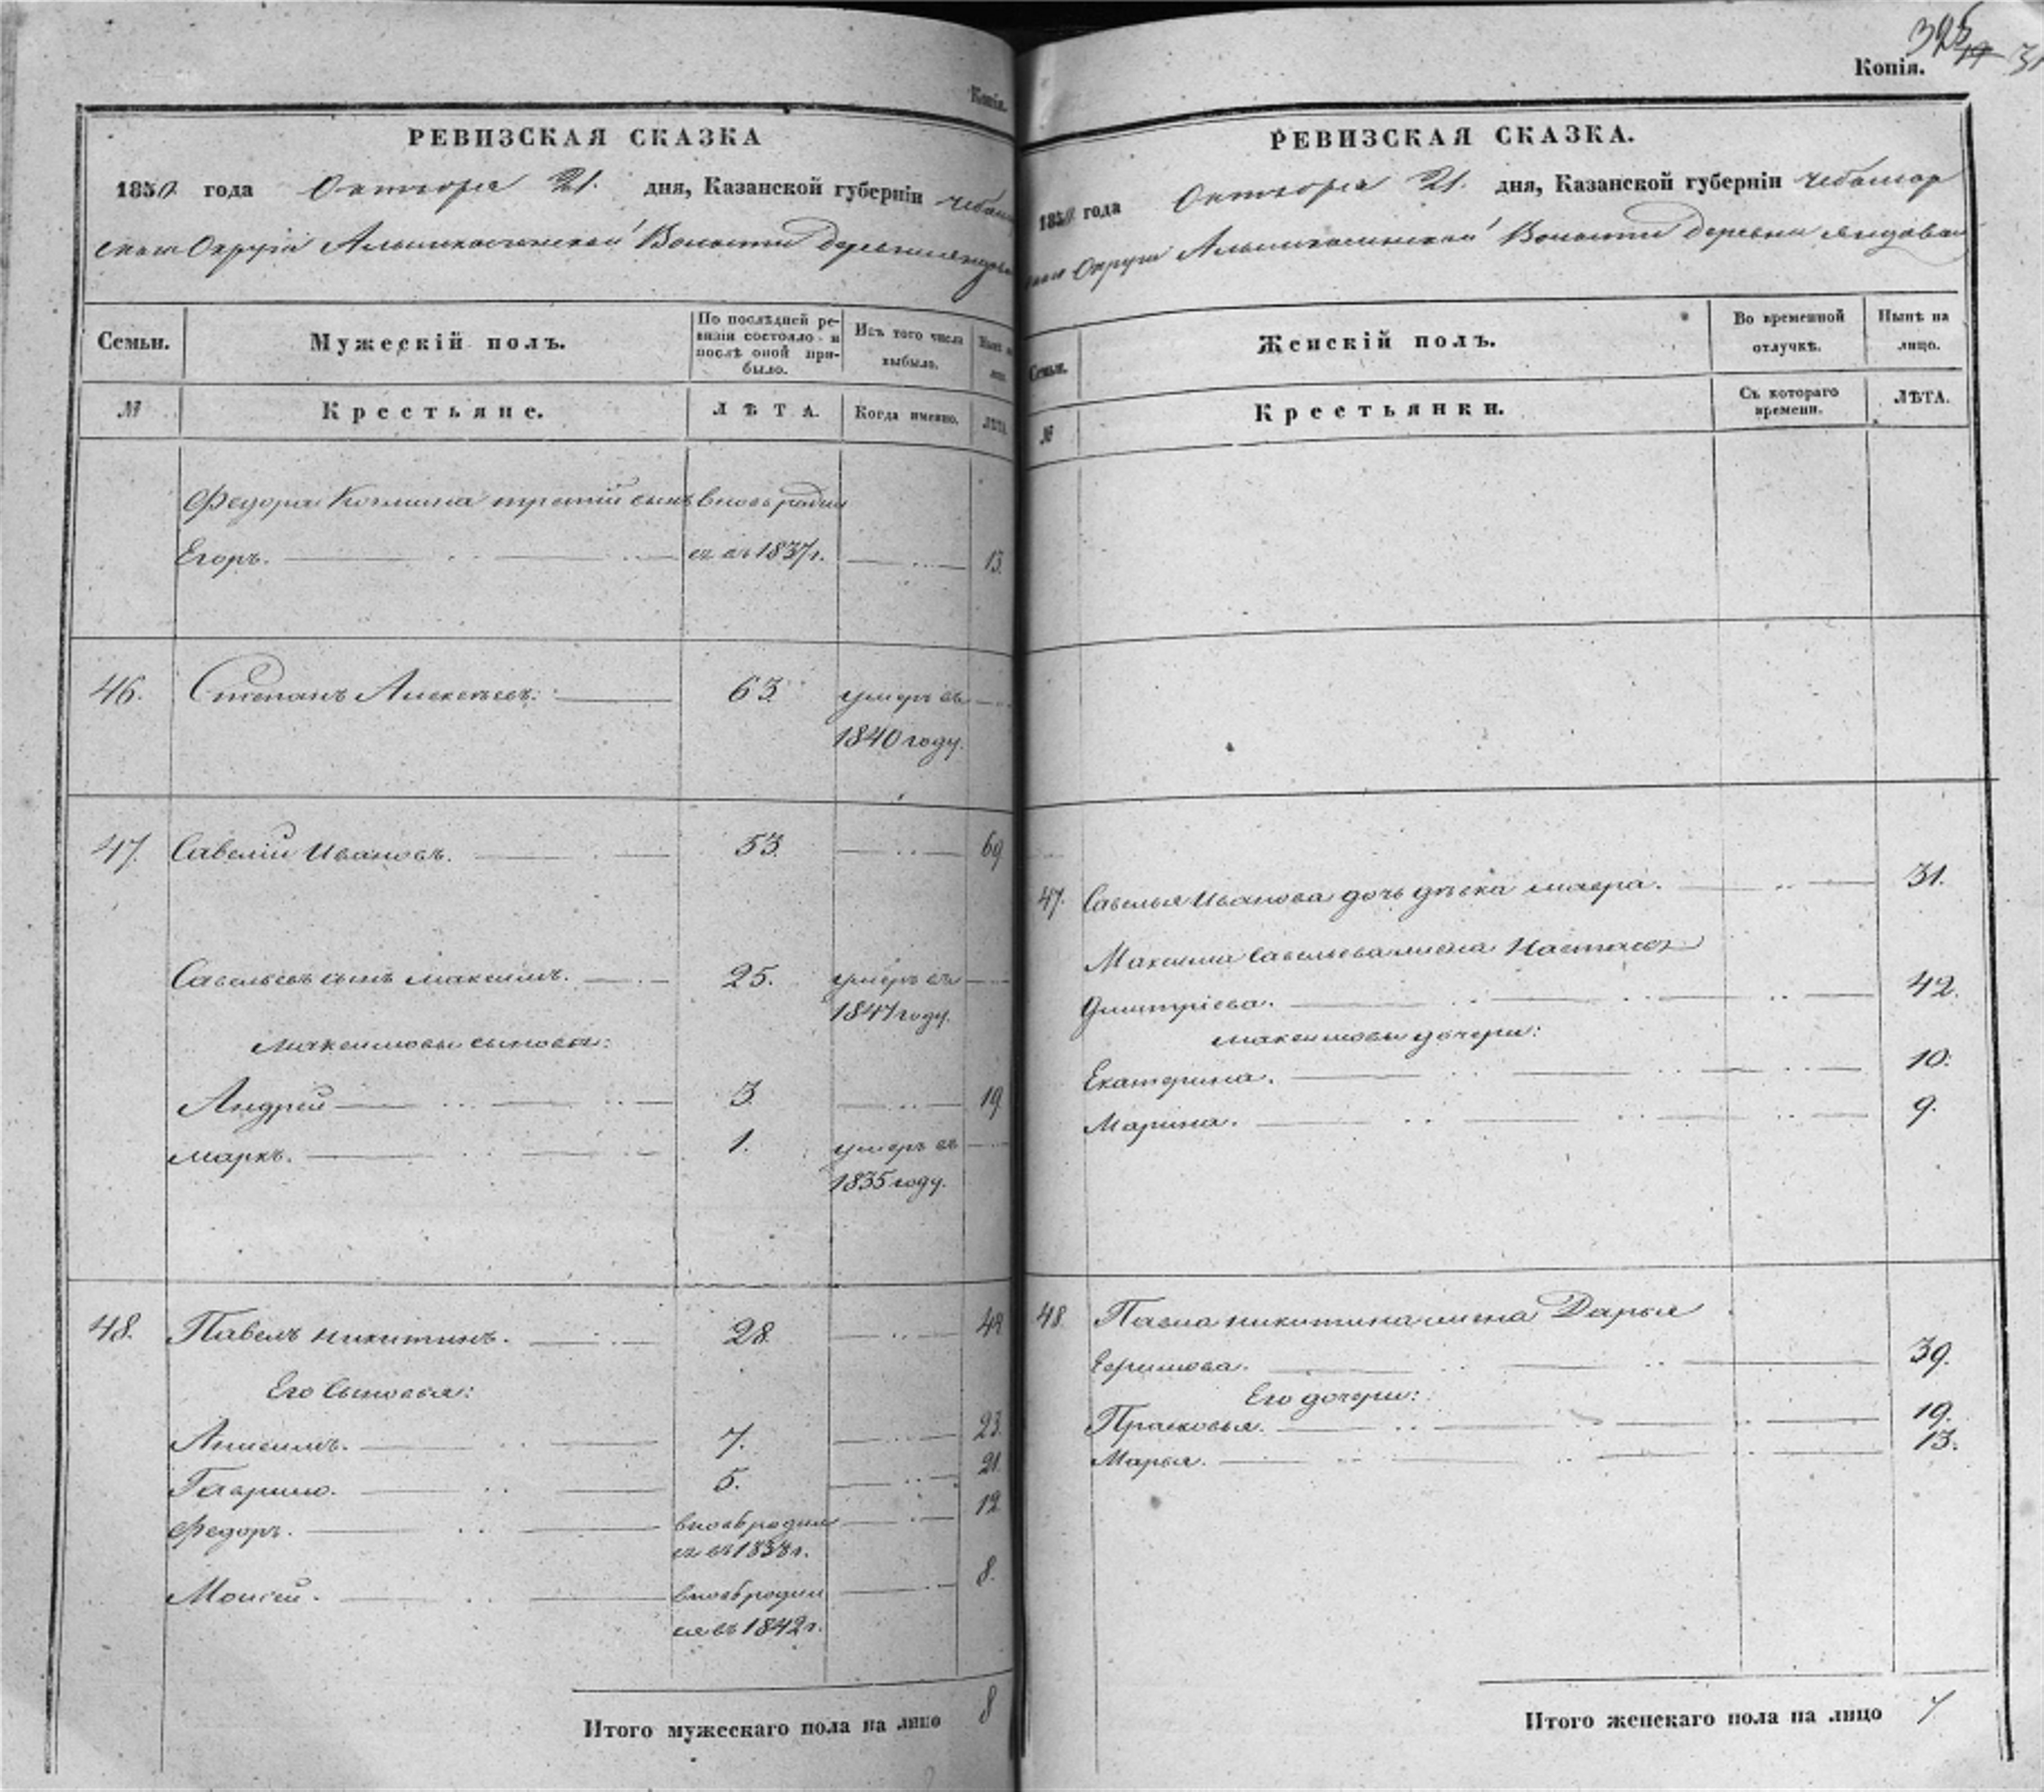 Копія.
РЕВИЗСКАЯ СКАЗКА
1850 года Октября 21. дня, Казанской губерніи Чебоксар
скаго Округа Алымкасинской Волости Деревни
Семьи. Мужескій полъ. По послѣдней ревизіи состояло и послѣ оной прибыло. Изъ того числа выбыло. Нынѣ на лицо.
№ Крестьяне. ЛѢТА. Когда именно. ЛѢТА.
Федора Козмина третій сынъ вновь родил
Егоръ. ся въ 1837 г. 13.
46. Степанъ Алексѣевъ. 63. умеръ въ
1840 году.
47. Савелій Ивановъ. 53. 69
Савельевъ сынъ Максимъ. 25. умеръ въ
1847 году.
Максимовы сыновья:
Андрей 3. 19
Маркъ. 1. умеръ въ
1835 году.
48. Павелъ Никитинъ. 28. 44
Его Сыновья:
Анисимъ. 7. 23.
Гаврило. 5. 21.
Федоръ. вновь родил 12
ся въ 1838 г.
Моисей. вновь родил 8.
ся въ 1842 г.
Итого мужескаго пола на лицо 8
Копія.
РЕВИЗСКАЯ СКАЗКА.
1850 года Октября 21. дня, Казанской губерніи Чебоксар
скаго Округа Алымкасинской Волости Деревни Яндовой
Семьи. Женскій полъ. Во временной отлучкѣ. Нынѣ на лицо.
№ Крестьянки. Съ котораго времени. ЛѢТА.
47. Савелья Иванова дочь дѣвка Мавра. 31.
Максима Савельева жена Настасья
Дмитріева. 42.
Максимовы дочери:
Екатерина. 10.
Марина. 9.
48. Павла Никитина жена Дарья
Ефимова. 39.
Его дочери:
Прасковья. 19.
Марья. 13.
Итого женскаго пола на лицо 7